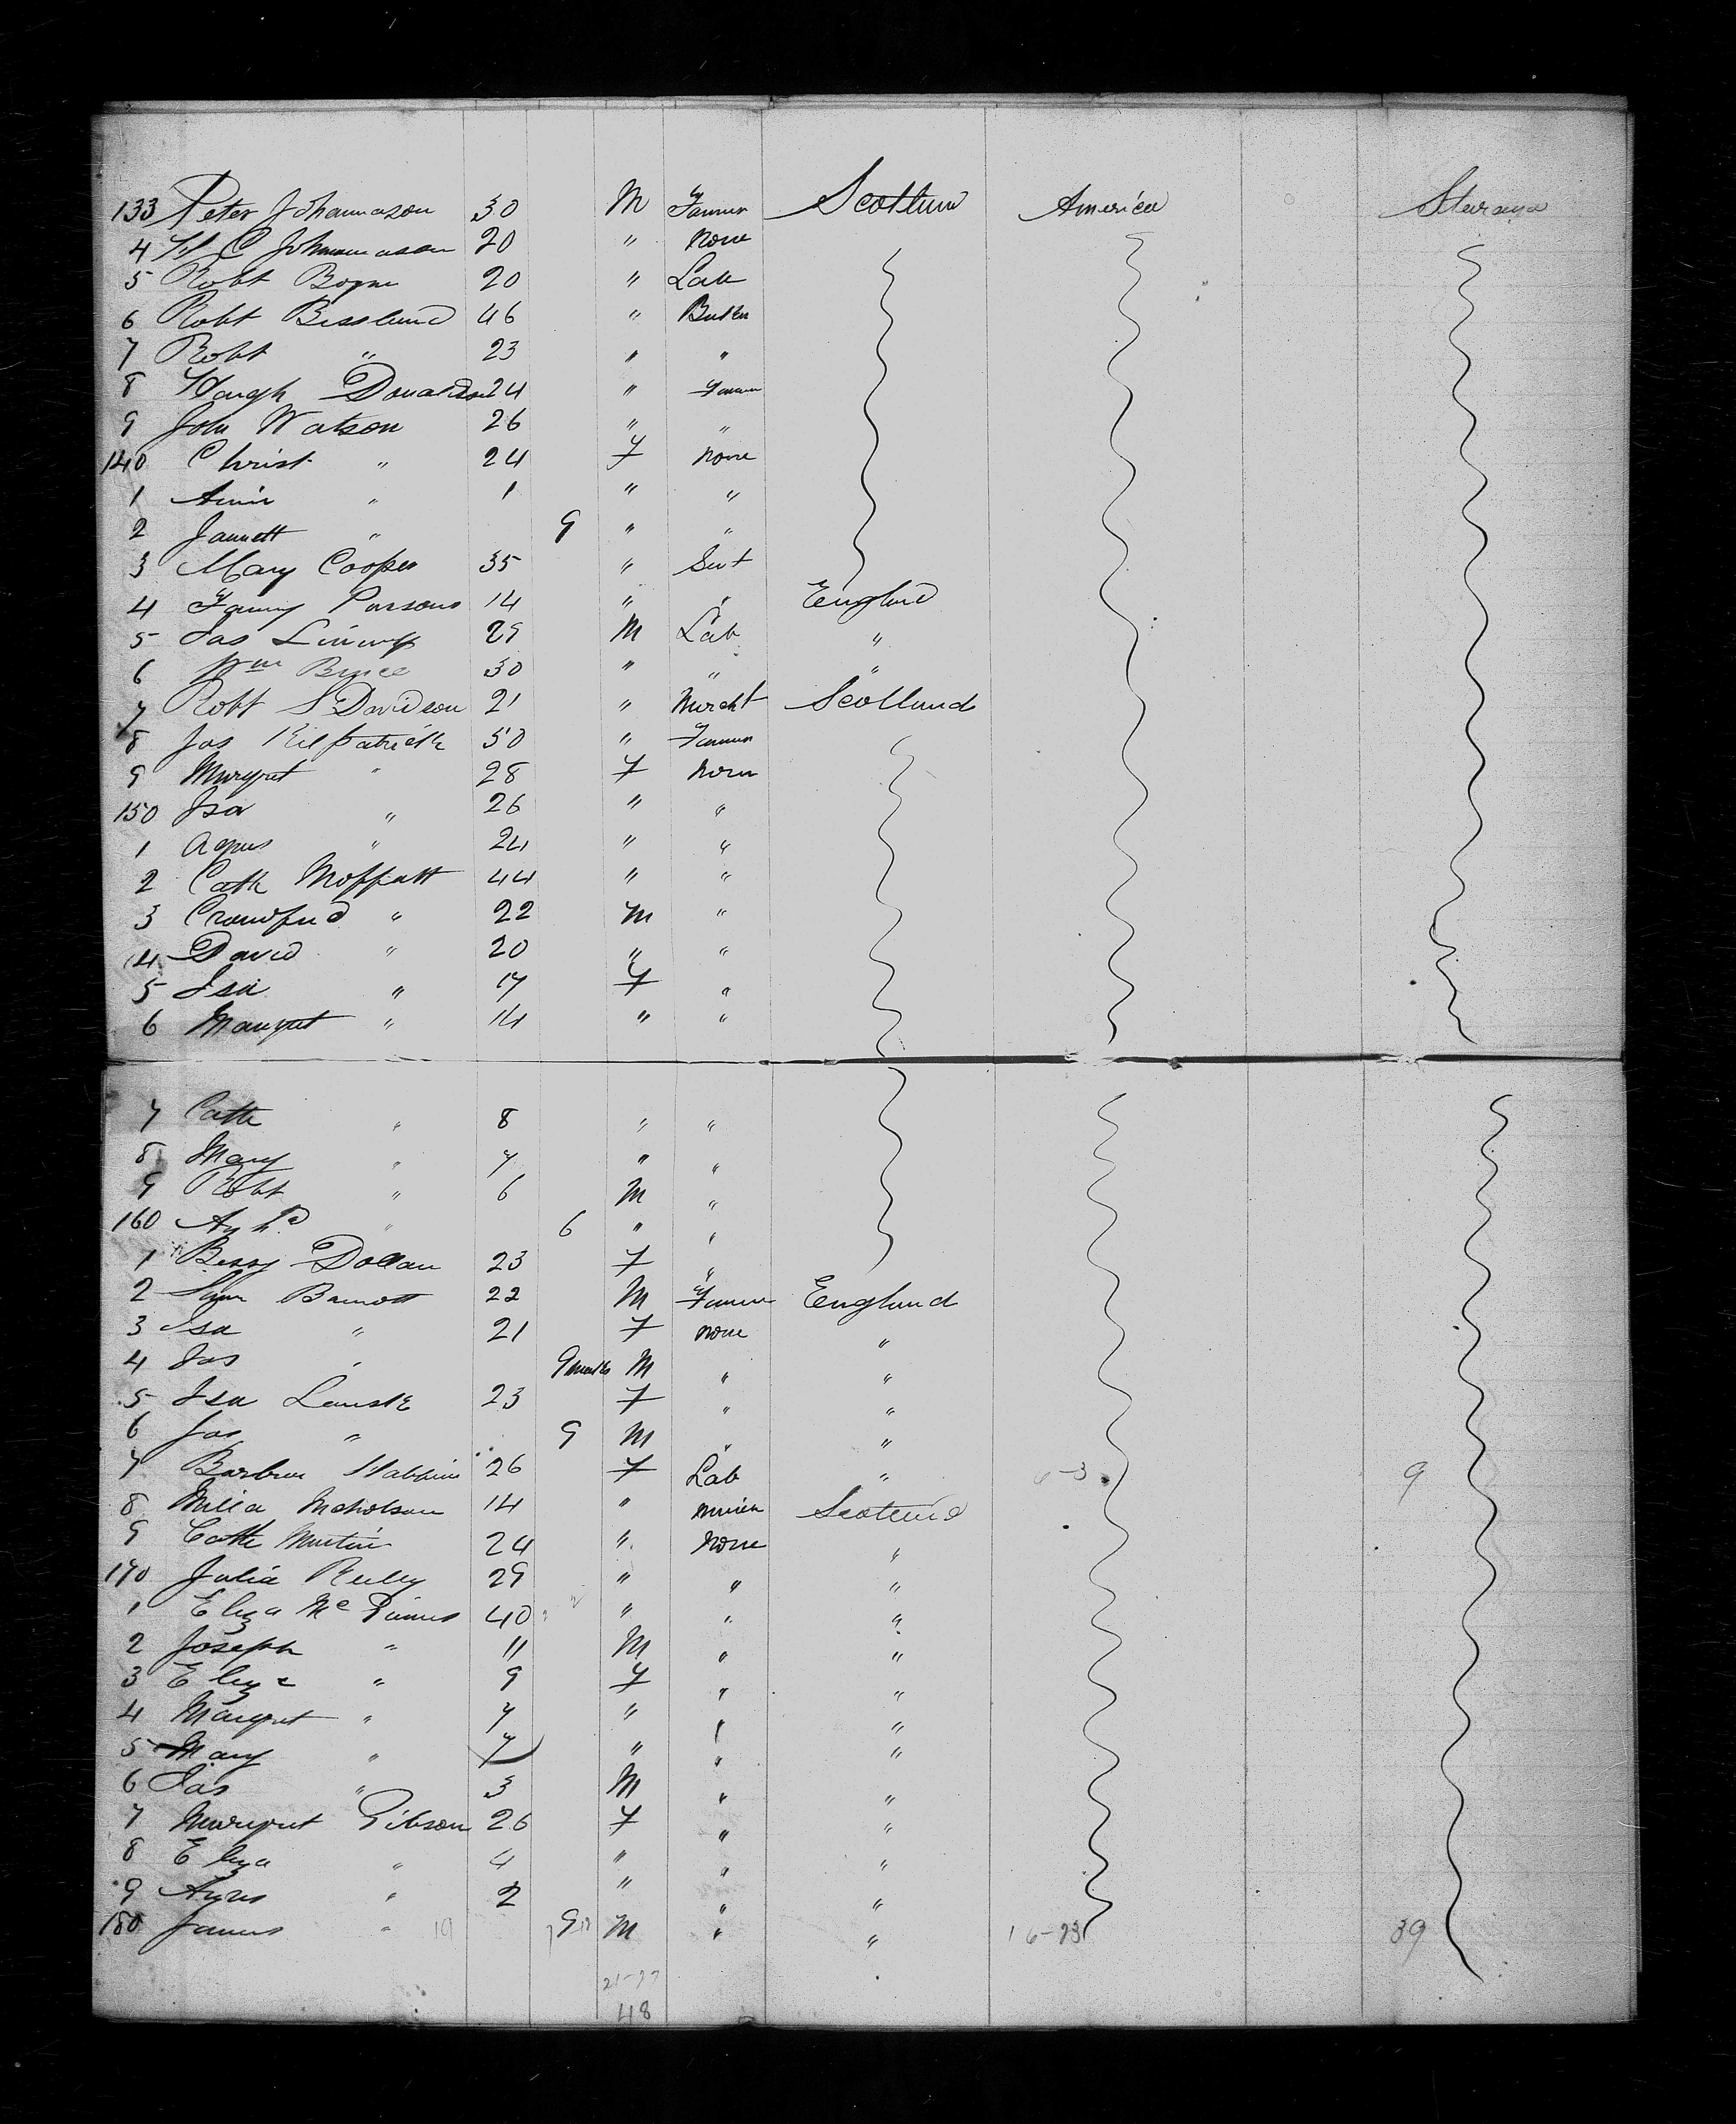 133 Peter Johannason 30 M Farmer Scotland America Steerage
4 W C Johannason 20 " None
5 Robt Bogue 20 " Lab
6 Robt Bissland 46 " Butler
7 Robt " 23 " "
8 Hough Donaldson 24 " Farmer
9 John Watson 26 " "
140 Christ " 24 F None
1 Annie " 1 " "
2 Jannett " 9 " "
3 Mary Cooper 35 " Sert
4 Fanny Parsons 14 " " England
5 Jas 29 M Lab "
6 Wm Bruce 30 " " "
7 Robt S Davidson 21 " Mercht Scotland
8 Jas Kilpatrick 50 " Farmer
9 Margret " 28 F None
150 Isa " 26 " "
1 Agnes " 24 " "
2 Cath Moffatt 44 " "
3 Crawfurd " 22 M "
4 David " 20 " "
5 Isa " 17 F "
6 Margret " 14 " "
7 Cath " 8 " "
8 Mary " 7 " "
9 Robt " 6 M "
160 " 6 " "
1 Bessy Dollan 23 F "
2 22 M Farmer England
3 Isa " 21 F None "
4 Jas " 9 months M " "
5 Isa 23 F " "
6 Jas " 9 M " "
7 Barbra 26 F Lab " 9
8 Nicholson 14 " Scotland
9 Cath Martin 24 " None "
170 Julia Reilly 29 " " "
1 Eliza Mc 40 " " "
2 Joseph " 11 M " "
3 Eliza " 9 F " "
4 Margret " 7 " " "
5 Mary " 7 " " "
6 Jas " 3 M " "
7 Margret Gibson 26 F " "
8 Eliza " 4 " " "
9 Agnes " 2 " " "
180 James " 19 9 M " " 39
48